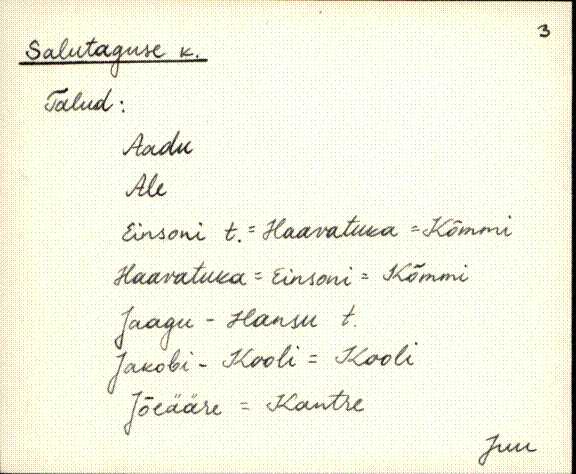 3
Salutaguse k.
Talud:
Aadu
Ale
Einsoni t. = Haavatuka = Kõmmi
Haavatuka = Einsoni = Kõmmi
Jaagu - Hansu t.
Jakobi - Kooli = Kooli
Jõeääre = Kantre
Juu